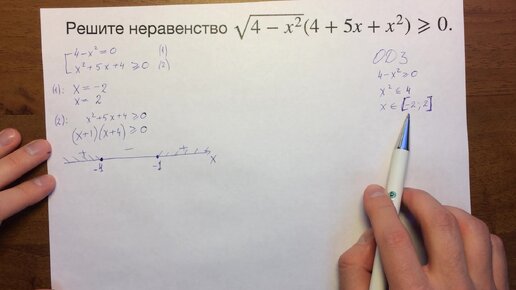 Решите неравенство √(4 − x²)(4 + 5x + x²) ⩾ 0.
[ 4-x² = 0 (1)
x² + 5x + 4 ⩾ 0 (2)
(1): x = -2
x = 2
(2): x² + 5x + 4 ⩾ 0
(x+1)(x+4) ⩾ 0
+ − +
-4 -1 x
ОДЗ
4-x² ⩾ 0
x² ⩽ 4
x ∈ [-2; 2]